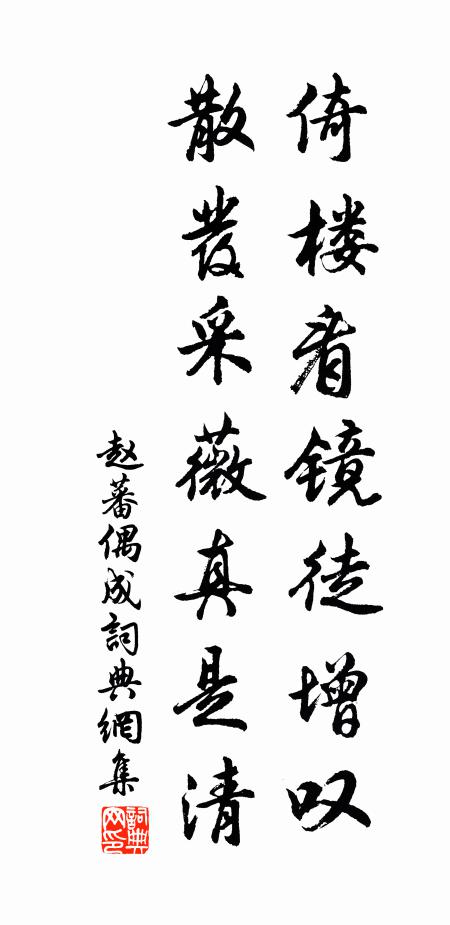 倚楼看镜徒增叹
散发采薇真是清
赵蕃偶成詞典網集
詞典网印